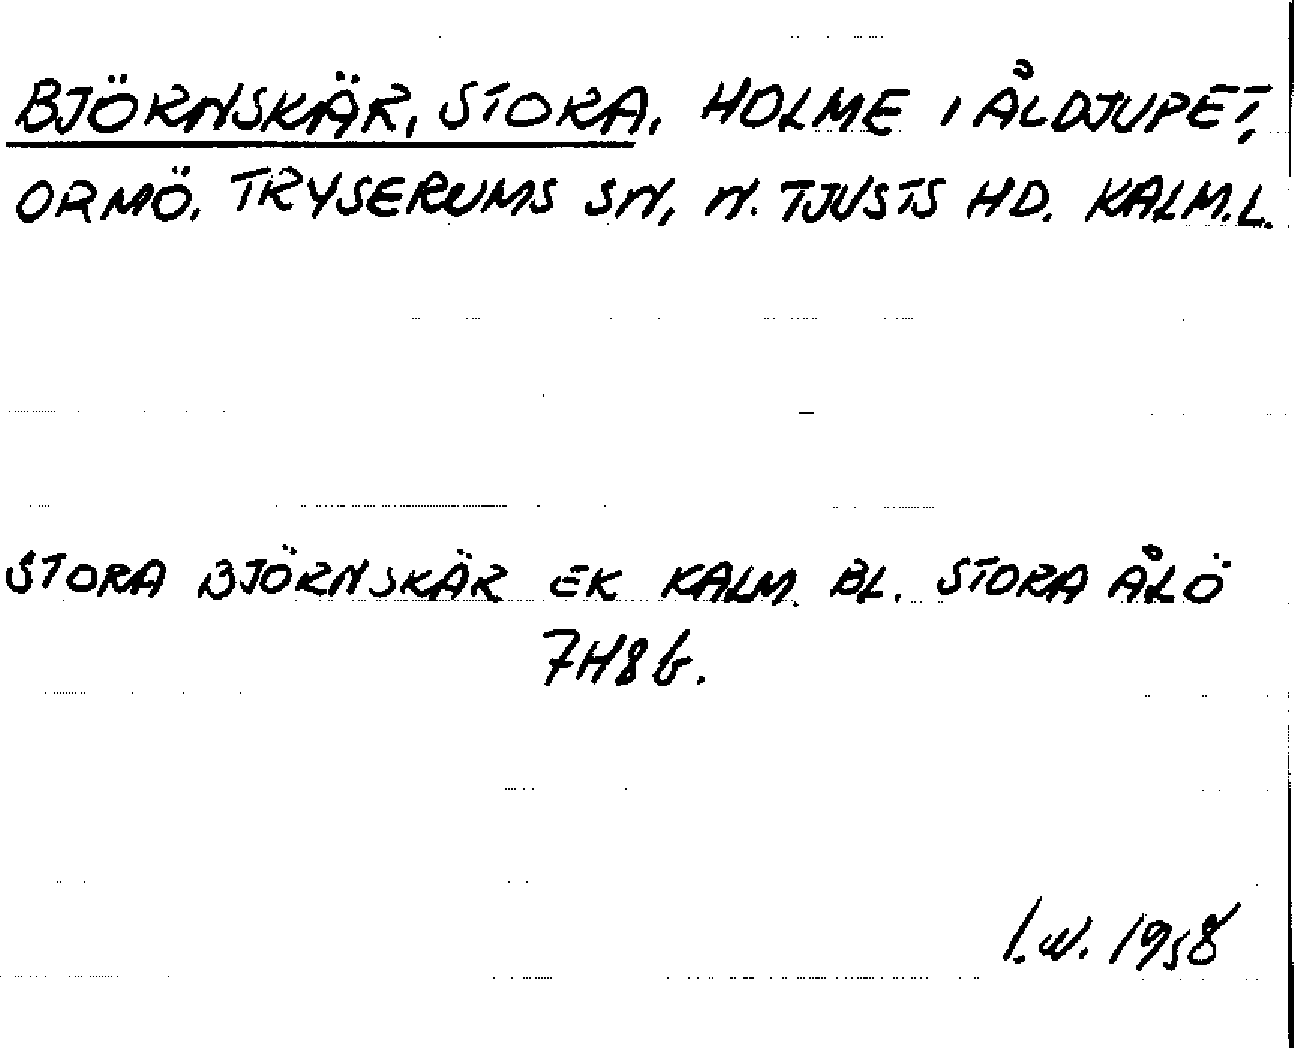 BJÖRNSKÄR, STORA, HOLME I ÅLDJUPET,
ORMÖ. TRYSERUMS SN, N. TJUSTS HD. KALM.L.
STORA BJÖRNSKÄR EK KALM. BL. STORA ÅLÖ
7H8b.
I.W. 1958